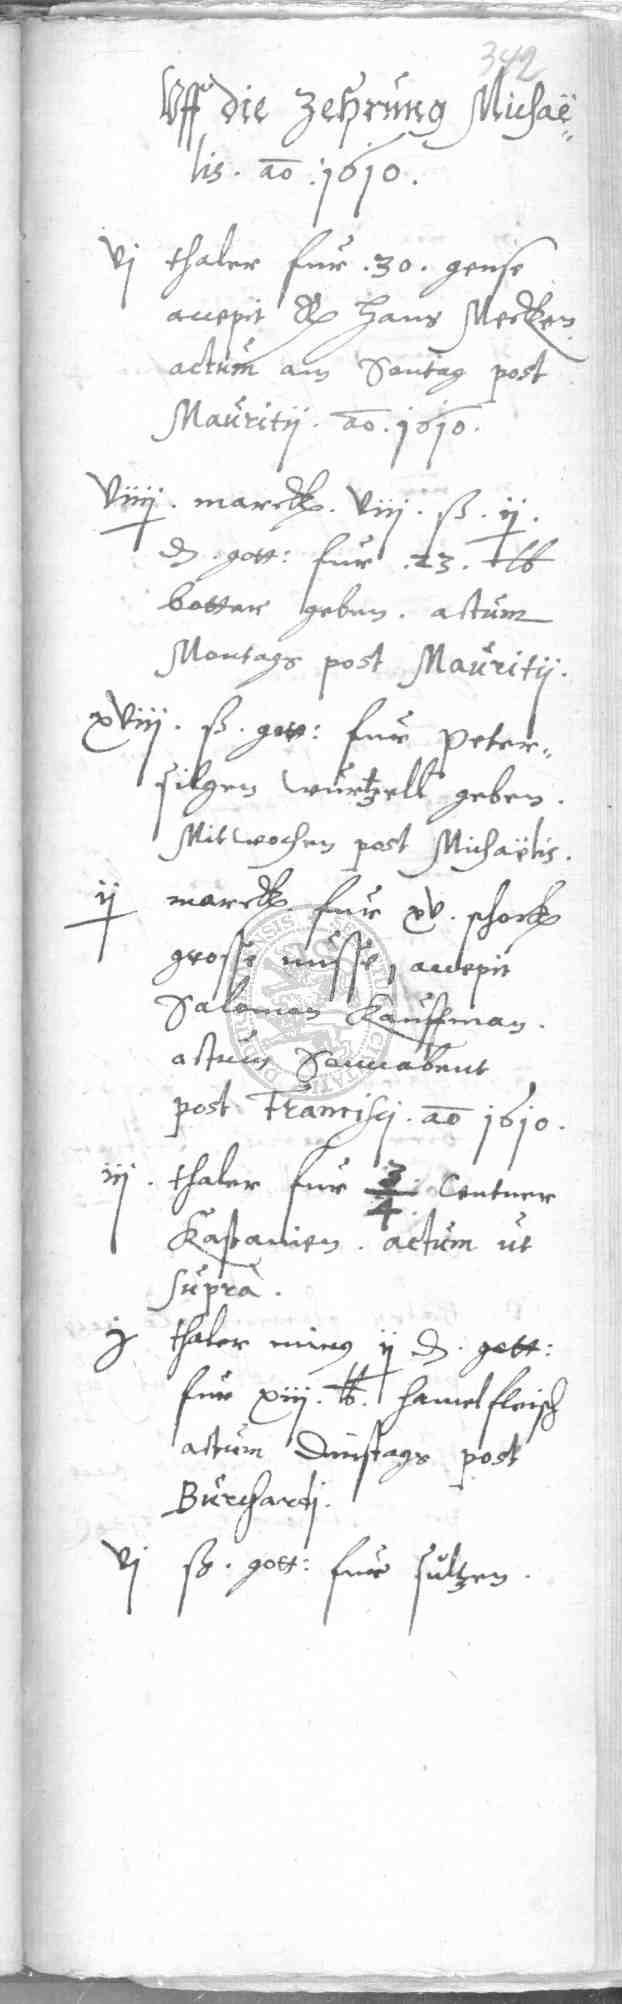 342
Uff die Zehrung Michaë-
lis. ao. 1610.
vj thaler fur .30. gense
accepit Hans Mecken
actum am Sontag post
Mauritij. ao. 1610.
viiij. marck. viij. ß. ij.
₰. gott: fur .23. lb
botter geben. actum
Montags post Mauritij.
xviij. ß. gott: fur Peter-
silgen wurtzell geben.
Mitwochen post Michaëlis.
ij marck. fur xv. schock
grosse nusse, accepit
Salomon Kauffman.
actum Sonnabent
post Francisci. ao 1610.
iij. thaler fur 3/4. Centner
Kastanien. actum ut
supra.
j thaler minus ij ₰. gott:
fur xiij. lb. hamelfleisch
actum Dinstags post
Burchardj.
vj ß. gott: fur sultzen.